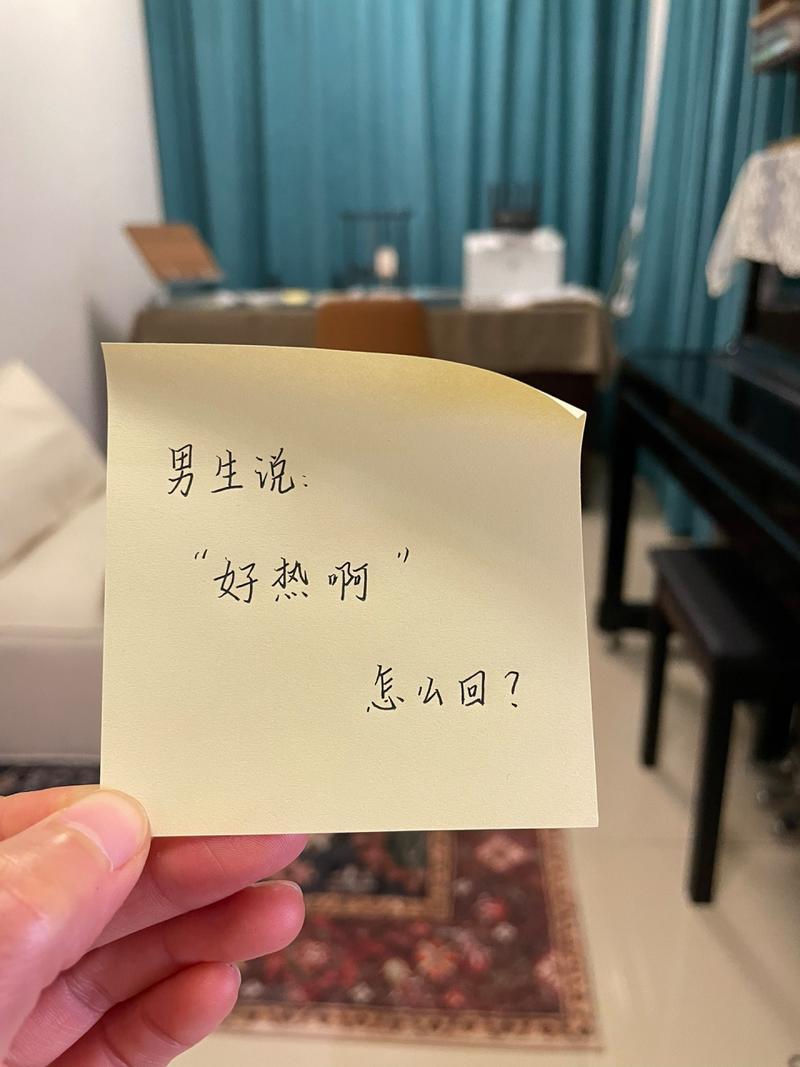 男生说:
“好热啊”
怎么回?